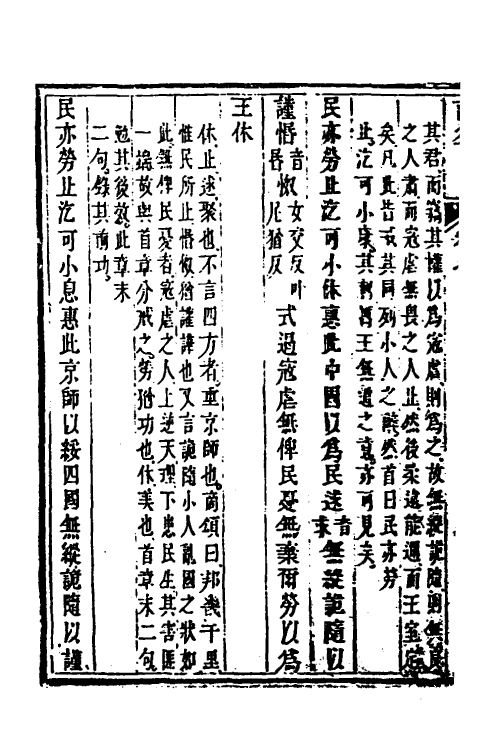 其君而竊其權以為寇虐則為之故無縱詭隨則無良
之人肅而寇虐無畏之人止然後柔遠能邇而王室定
矣凡此皆戒其同列小人之辭然首曰民亦勞
止汔可小康其刺王無道之意亦可見矣
民亦勞止汔可小休惠此中國以為民逑音求無縱詭隨以
謹惽音昏怓女交反叶尼猶反式遏寇虐無俾民憂無棄爾勞以為
王休
休止逑聚也不言四方者重京師也商頌曰邦畿千里
惟民所止惽怓猶讙譁也又言詭隨小人亂國之狀如
此無俾民憂者寇虐之人上逆天理下患民生其害匪
一端故與首章分戒之勞猶功也休美也首章末二句
勉其後效此章末
二句錄其前功
民亦勞止汔可小息惠此京師以綏四國無縱詭隨以謹